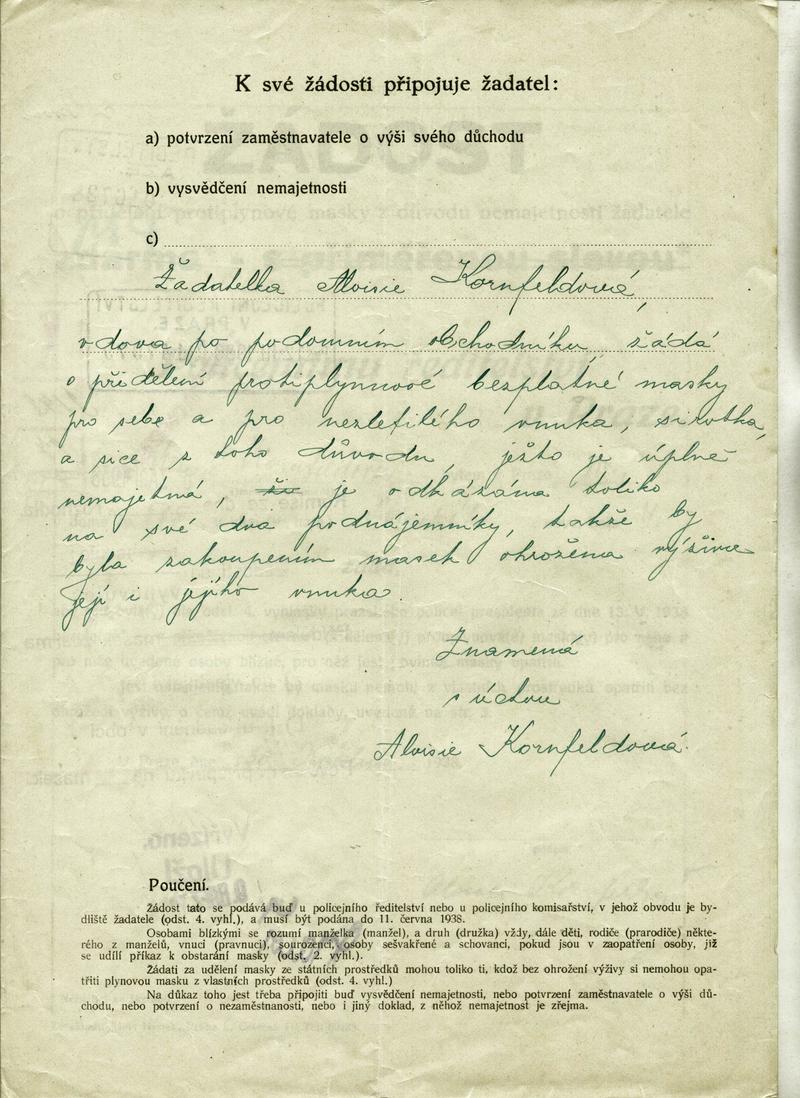 K své žádosti připojuje žadatel:
a) potvrzení zaměstnavatele o výši svého důchodu
b) vysvědčení nemajetnosti
c)
Žadatelka Aloisie Kornfeldová,
vdova po podomním obchodníku, žádá
o přidělení protiplynnové bezplatné masky
pro sebe a pro nezletilého vnuka, sirotka,
a sice z toho důvodu, ježto je úplně
nemajetná, ži je odkázána toliko
na své dva podnájemníky, takže by
byla zakoupením masek ohrožena výživa
její i jejího vnuka.
Znamená
s úctou
Aloisie Kornfeldová.
Poučení.
Žádost tato se podává buď u policejního ředitelství nebo u policejního komisařství, v jehož obvodu je by-
dliště žadatele (odst. 4. vyhl.), a musí být podána do 11. června 1938.
Osobami blízkými se rozumí manželka (manžel), a druh (družka) vždy, dále děti, rodiče (prarodiče) někte-
rého z manželů, vnuci (pravnuci), sourozenci, osoby sešvakřené a schovanci, pokud jsou v zaopatření osoby, jíž
se udílí příkaz k obstarání masky (odst. 2. vyhl.).
Žádati za udělení masky ze státních prostředků mohou toliko ti, kdož bez ohrožení výživy si nemohou opa-
třiti plynovou masku z vlastních prostředků (odst. 4. vyhl.)
Na důkaz toho jest třeba připojiti buď vysvědčení nemajetnosti, nebo potvrzení zaměstnavatele o výši dů-
chodu, nebo potvrzení o nezaměstnanosti, nebo i jiný doklad, z něhož nemajetnost je zřejma.